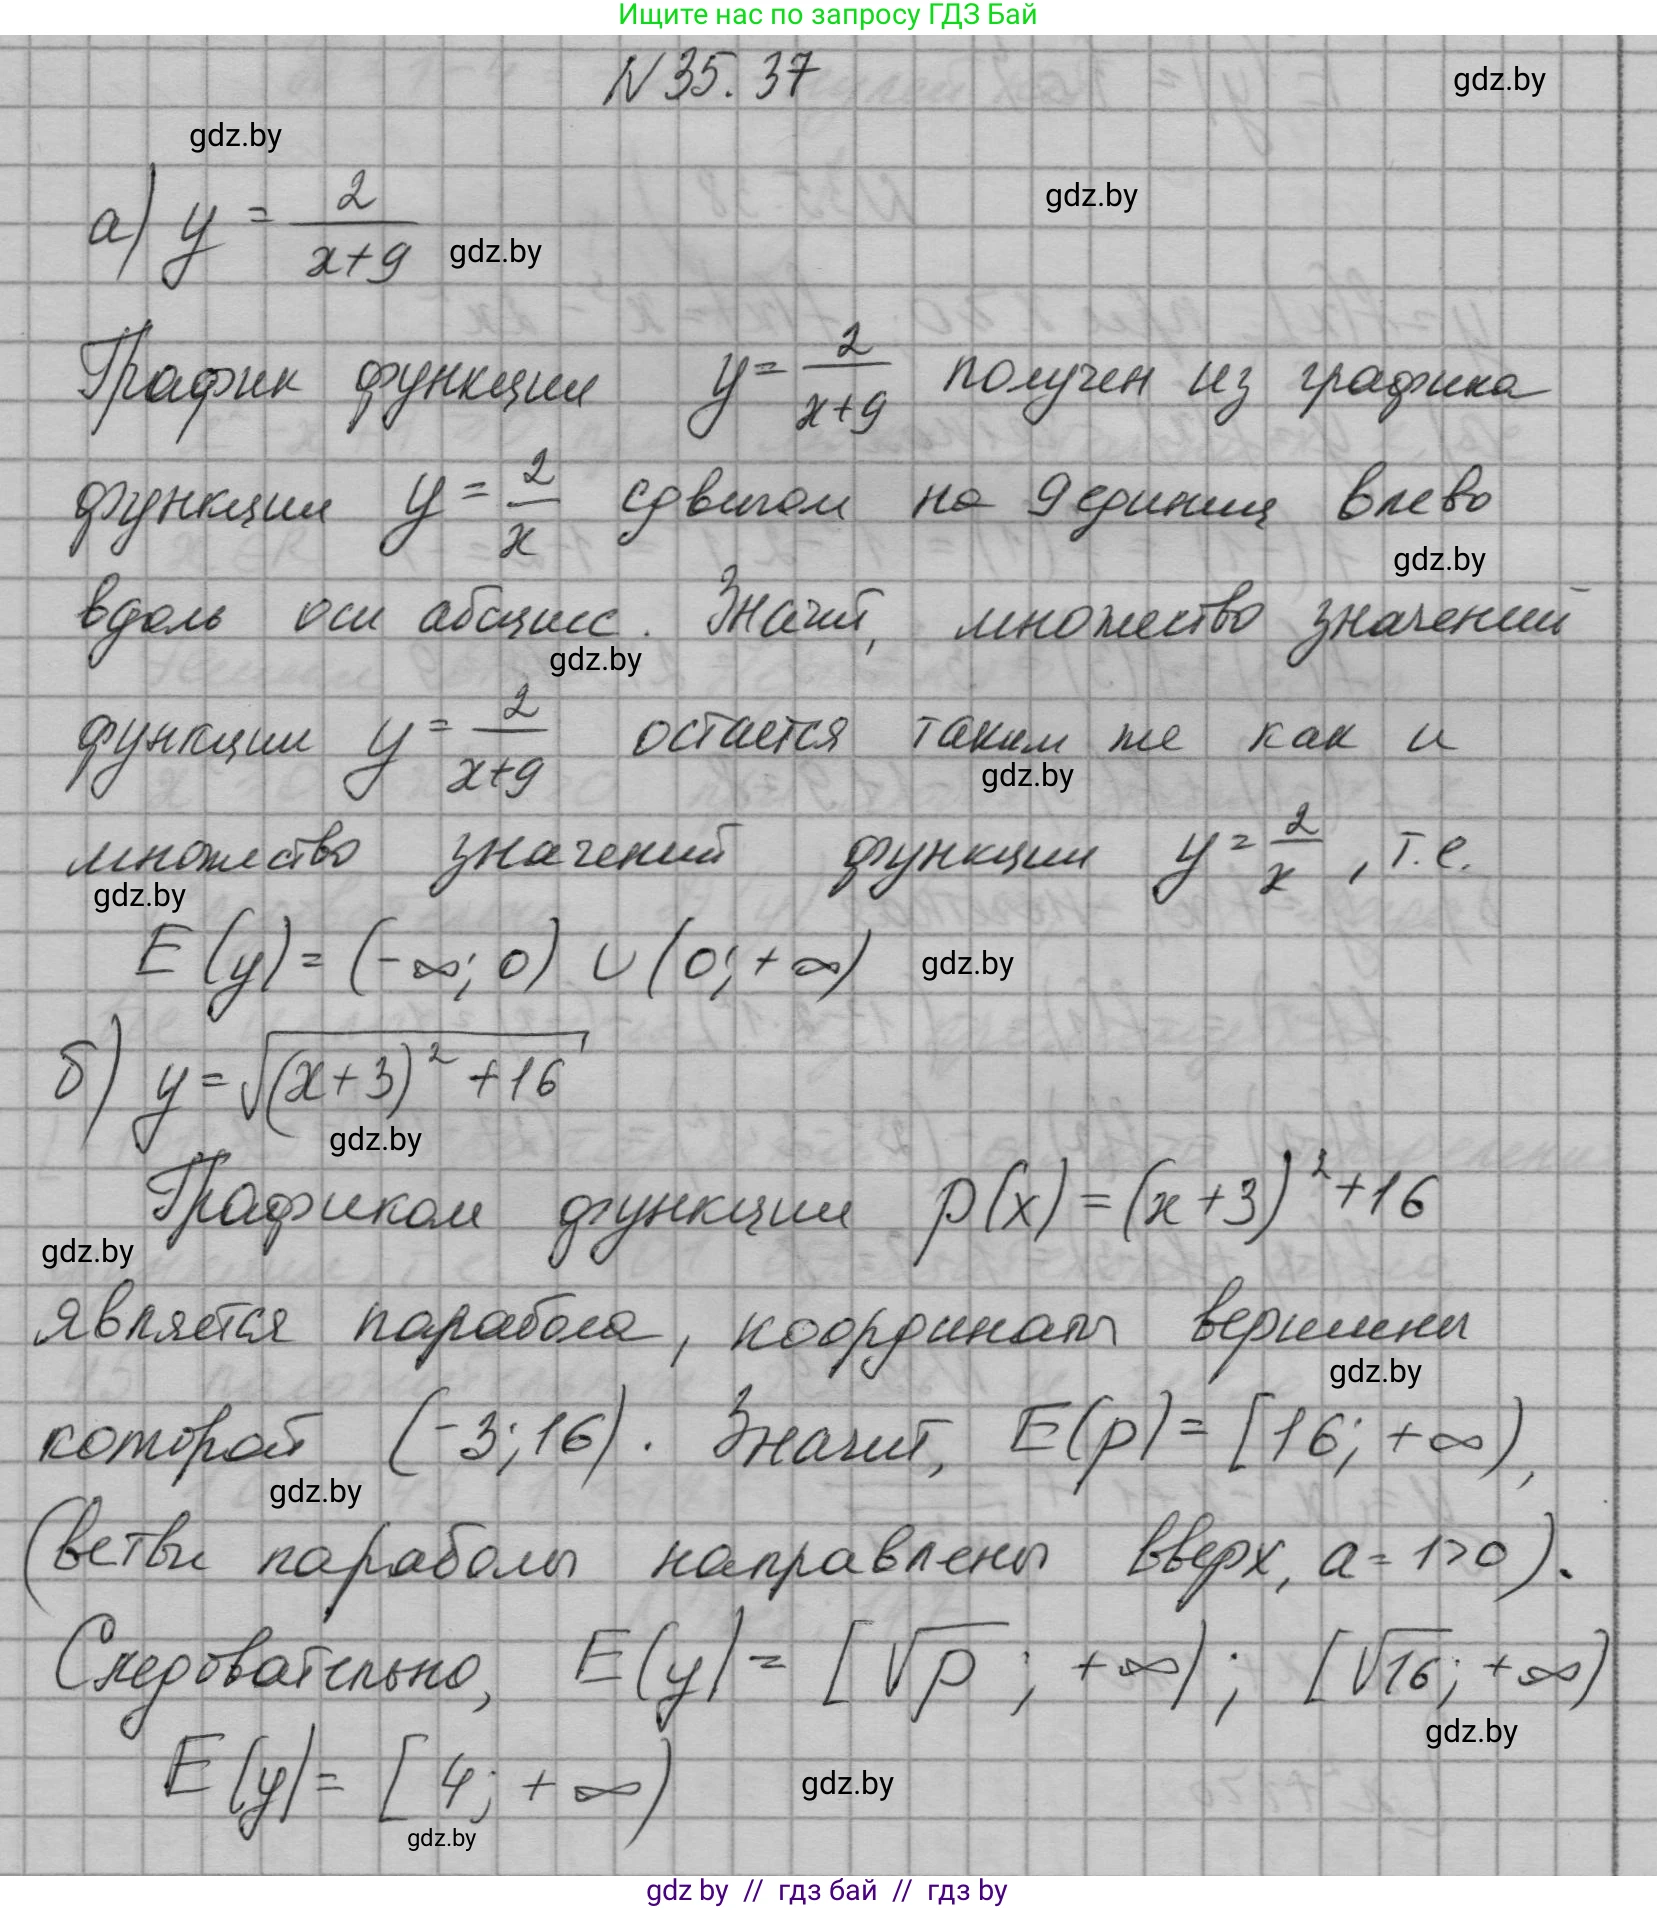 Ищите нас по запросу ГДЗ Бай
N 35. 37
gdz.by
gdz.by
а) y = 2/(x+9)
gdz.by
gdz.by
График функции y = 2/(x+9) получен из графика
функции y = 2/x сдвигом на 9 единиц влево
gdz.by
вдоль оси абсцисс. Значит, множество значений
gdz.by
функции y = 2/(x+9) остается таким же как и
gdz.by
множество значений функции y = 2/x, т.е.
gdz.by
E(y) = (-∞; 0) ∪ (0; +∞)
gdz.by
б) y = √((x+3)² + 16)
gdz.by
Графиком функции p(x) = (x+3)² + 16
gdz.by
является парабола, координаты вершины
gdz.by
которой (-3; 16). Значит, E(p) = [16; +∞),
gdz.by
(ветви параболы направлены вверх, a = 1 > 0).
Следовательно, E(y) = [√p; +∞); [√16; +∞)
gdz.by
E(y) = [4; +∞)
gdz.by
gdz.by
gdz by // гдз бай // гдз by